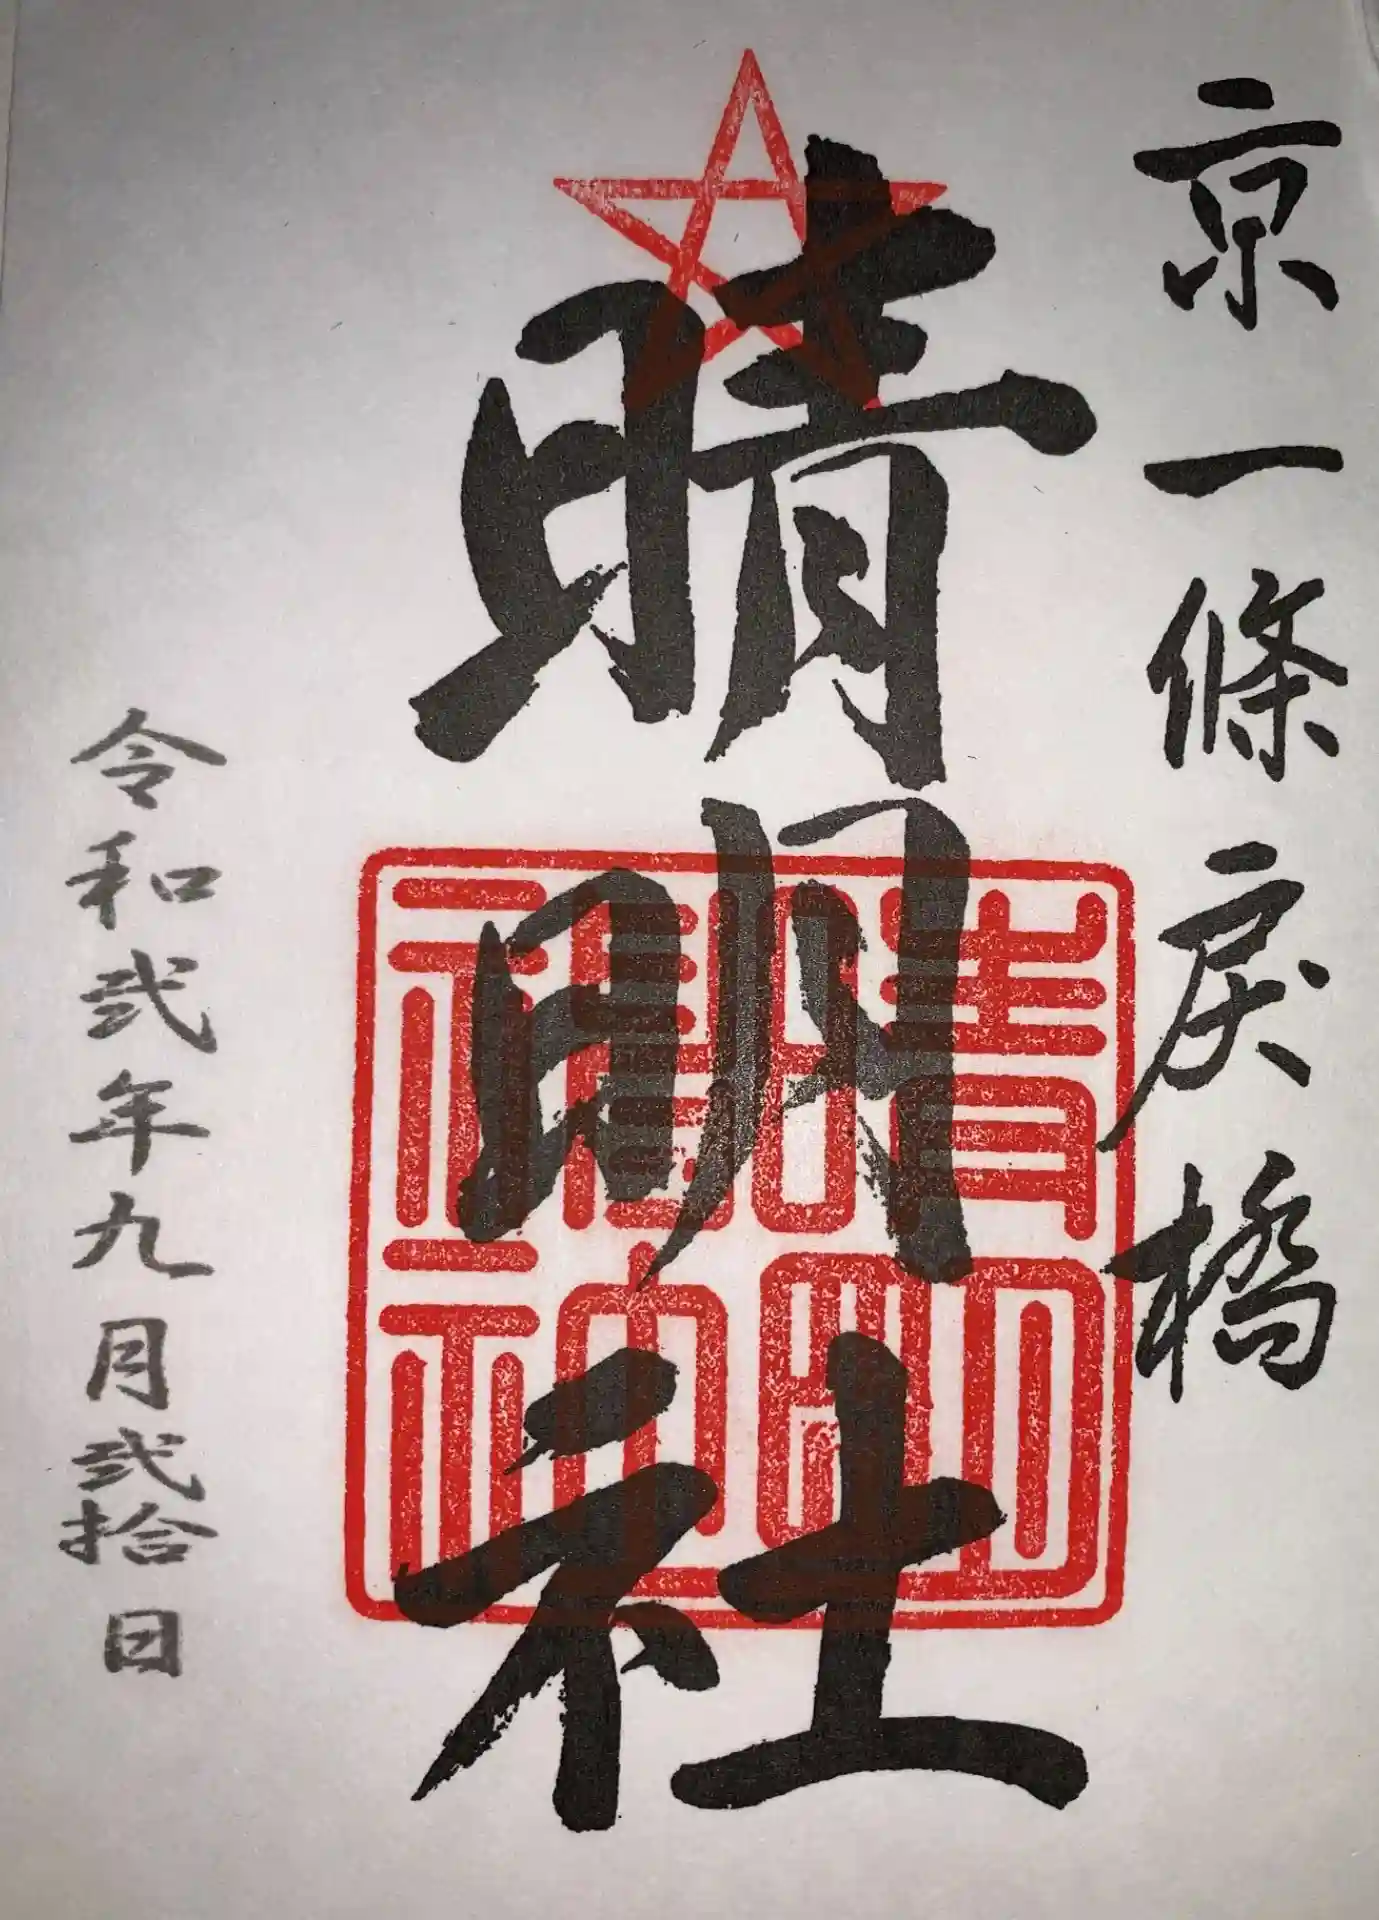 京一條戻橋
晴明社
晴明神社
令和弐年九月弐拾日